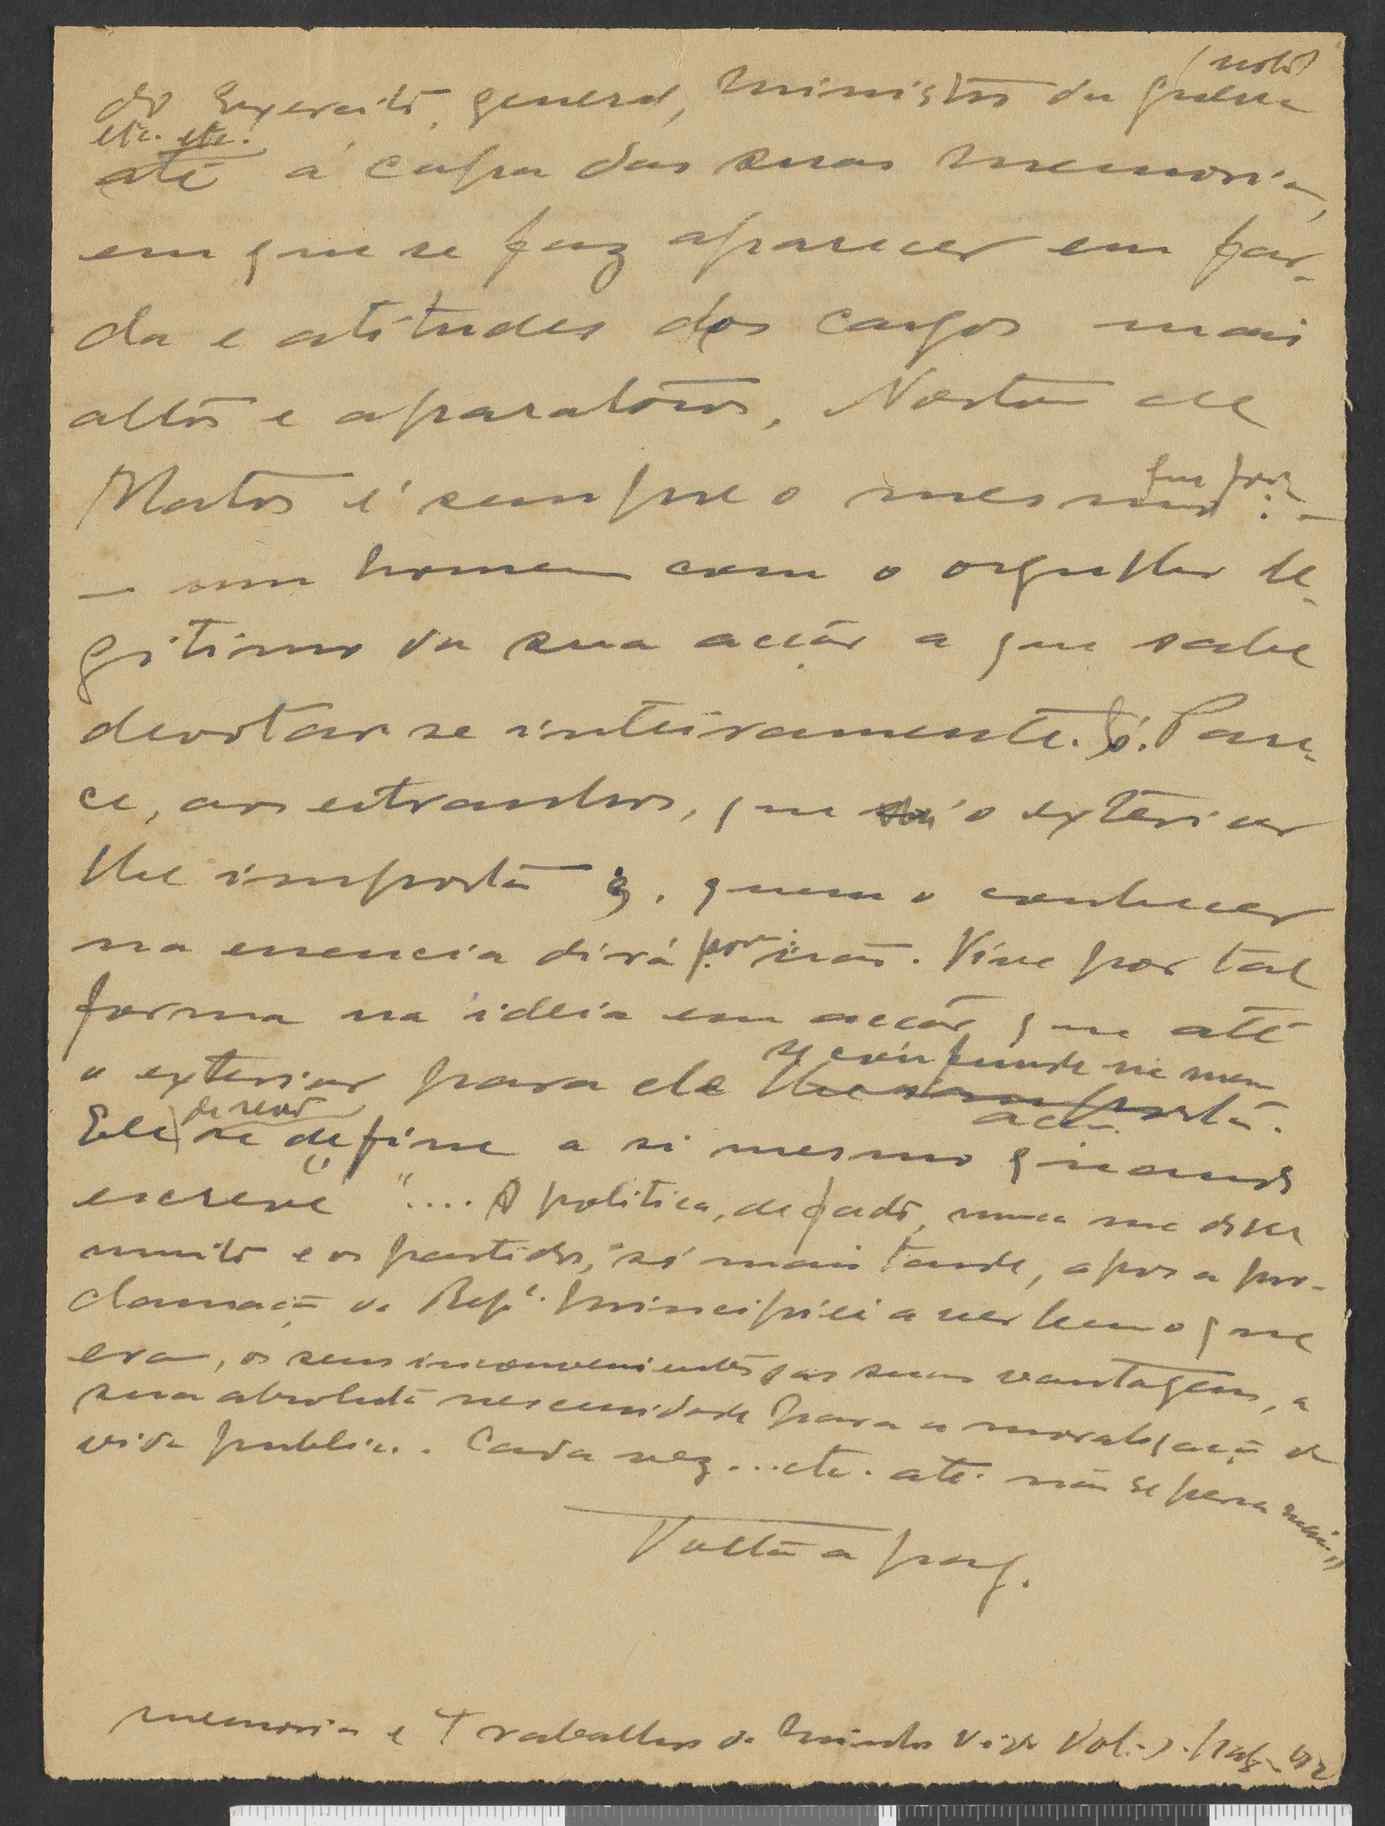 (nota)
do Exercito, general, Ministro da guerra
etc. etc.
até á capa das suas memorias,
em que se faz aparecer em far-
da e atitudes dos cargos mais
altos e aparatosos, Norton de
Matos é sempre o mesmo que foi: -
- um homem com o orgulho le-
gitimo da sua acção a que sabe
devotar-se inteiramente. Só. Pare-
ce, aos estranhos, que só o exterior
lhe importa e, quem o conhecer
na essencia dirá por isso não. Vive por tal
forma na ideia em acção que até
o exterior para ele lhe importa.
se confunde na mesma
acção.
Ele se define a si mesmo quando
escreve "....A politica, de facto, nunca me disse
muito e os partidos, só mais tarde, apos a pro-
clamação da Repª. principiei a ver bem o que
era, os seus inconvenientes e as suas vantagens, a
sua absoluta necessidade para a moralisação da
vida publica. Cada vez...etc. até não se pensa mais"
Volta a pag.
memorias e Trabalhos da minha Vida Vol.